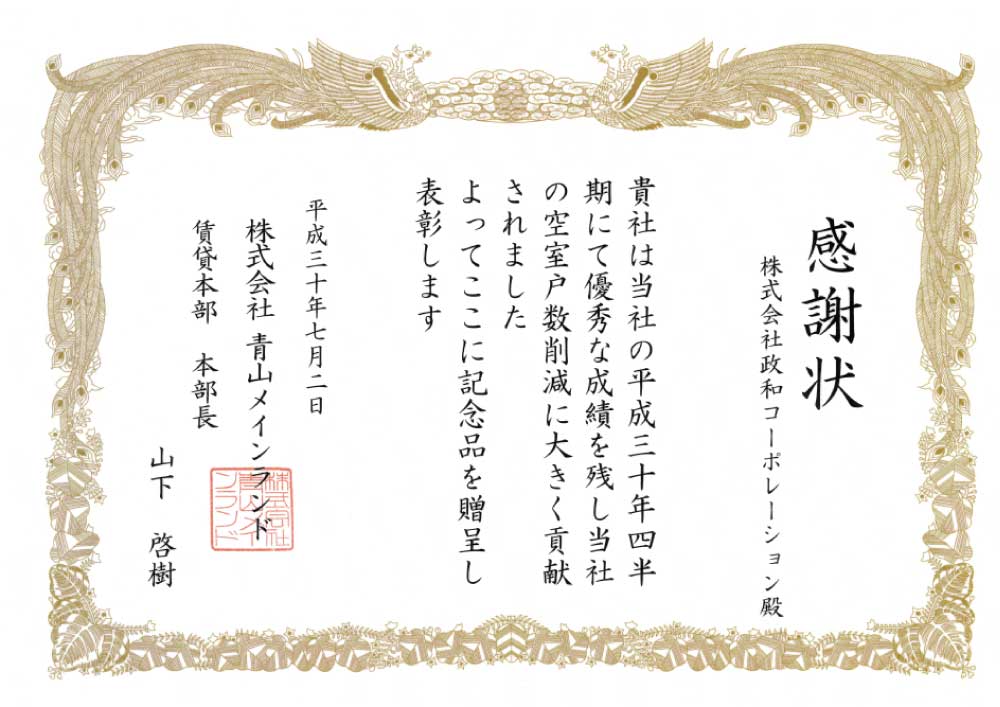 感謝状
株式会社政和コーポレーション殿
貴社は当社の平成三十年四半
期にて優秀な成績を残し当社
の空室戸数削減に大きく貢献
されました
よってここに記念品を贈呈し
表彰します
平成三十年七月二日
株式会社 青山メインランド
賃貸本部 本部長
山下 啓樹
株式会社
青山メイ
ンランド